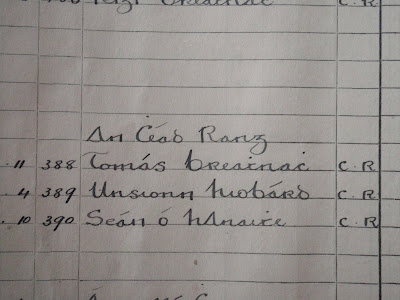 C.R
An Céad Rang
11 388 Tomás Breatnac C.R
4 389 Unsionn Hiobárd C.R
10 390 Seán ó C.R